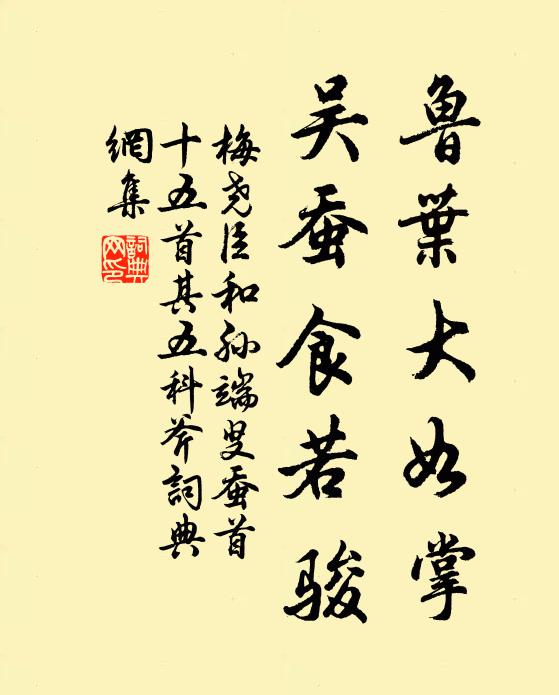 鲁葉大如掌
吴蚕食若骏
梅尧臣和孙端叟蚕首
十五首其五科斧詞典
網集
詞典
网印